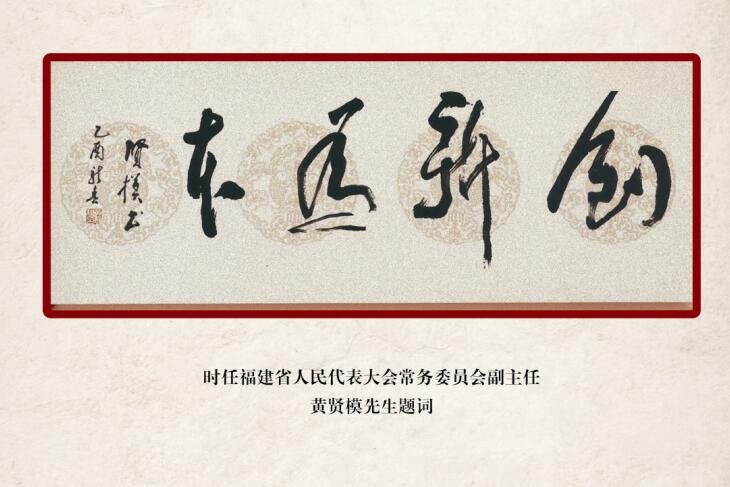 创新为本
乙酉新春
贤模书
时任福建省人民代表大会常务委员会副主任
黄贤模先生题词